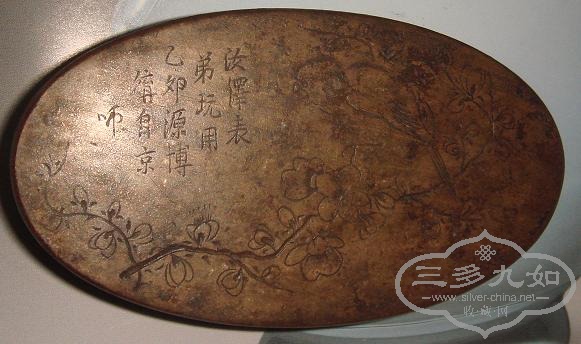 汝澤表
弟玩用
乙卯源博
自京
師
三多九如
www.silver-china.net
收藏网